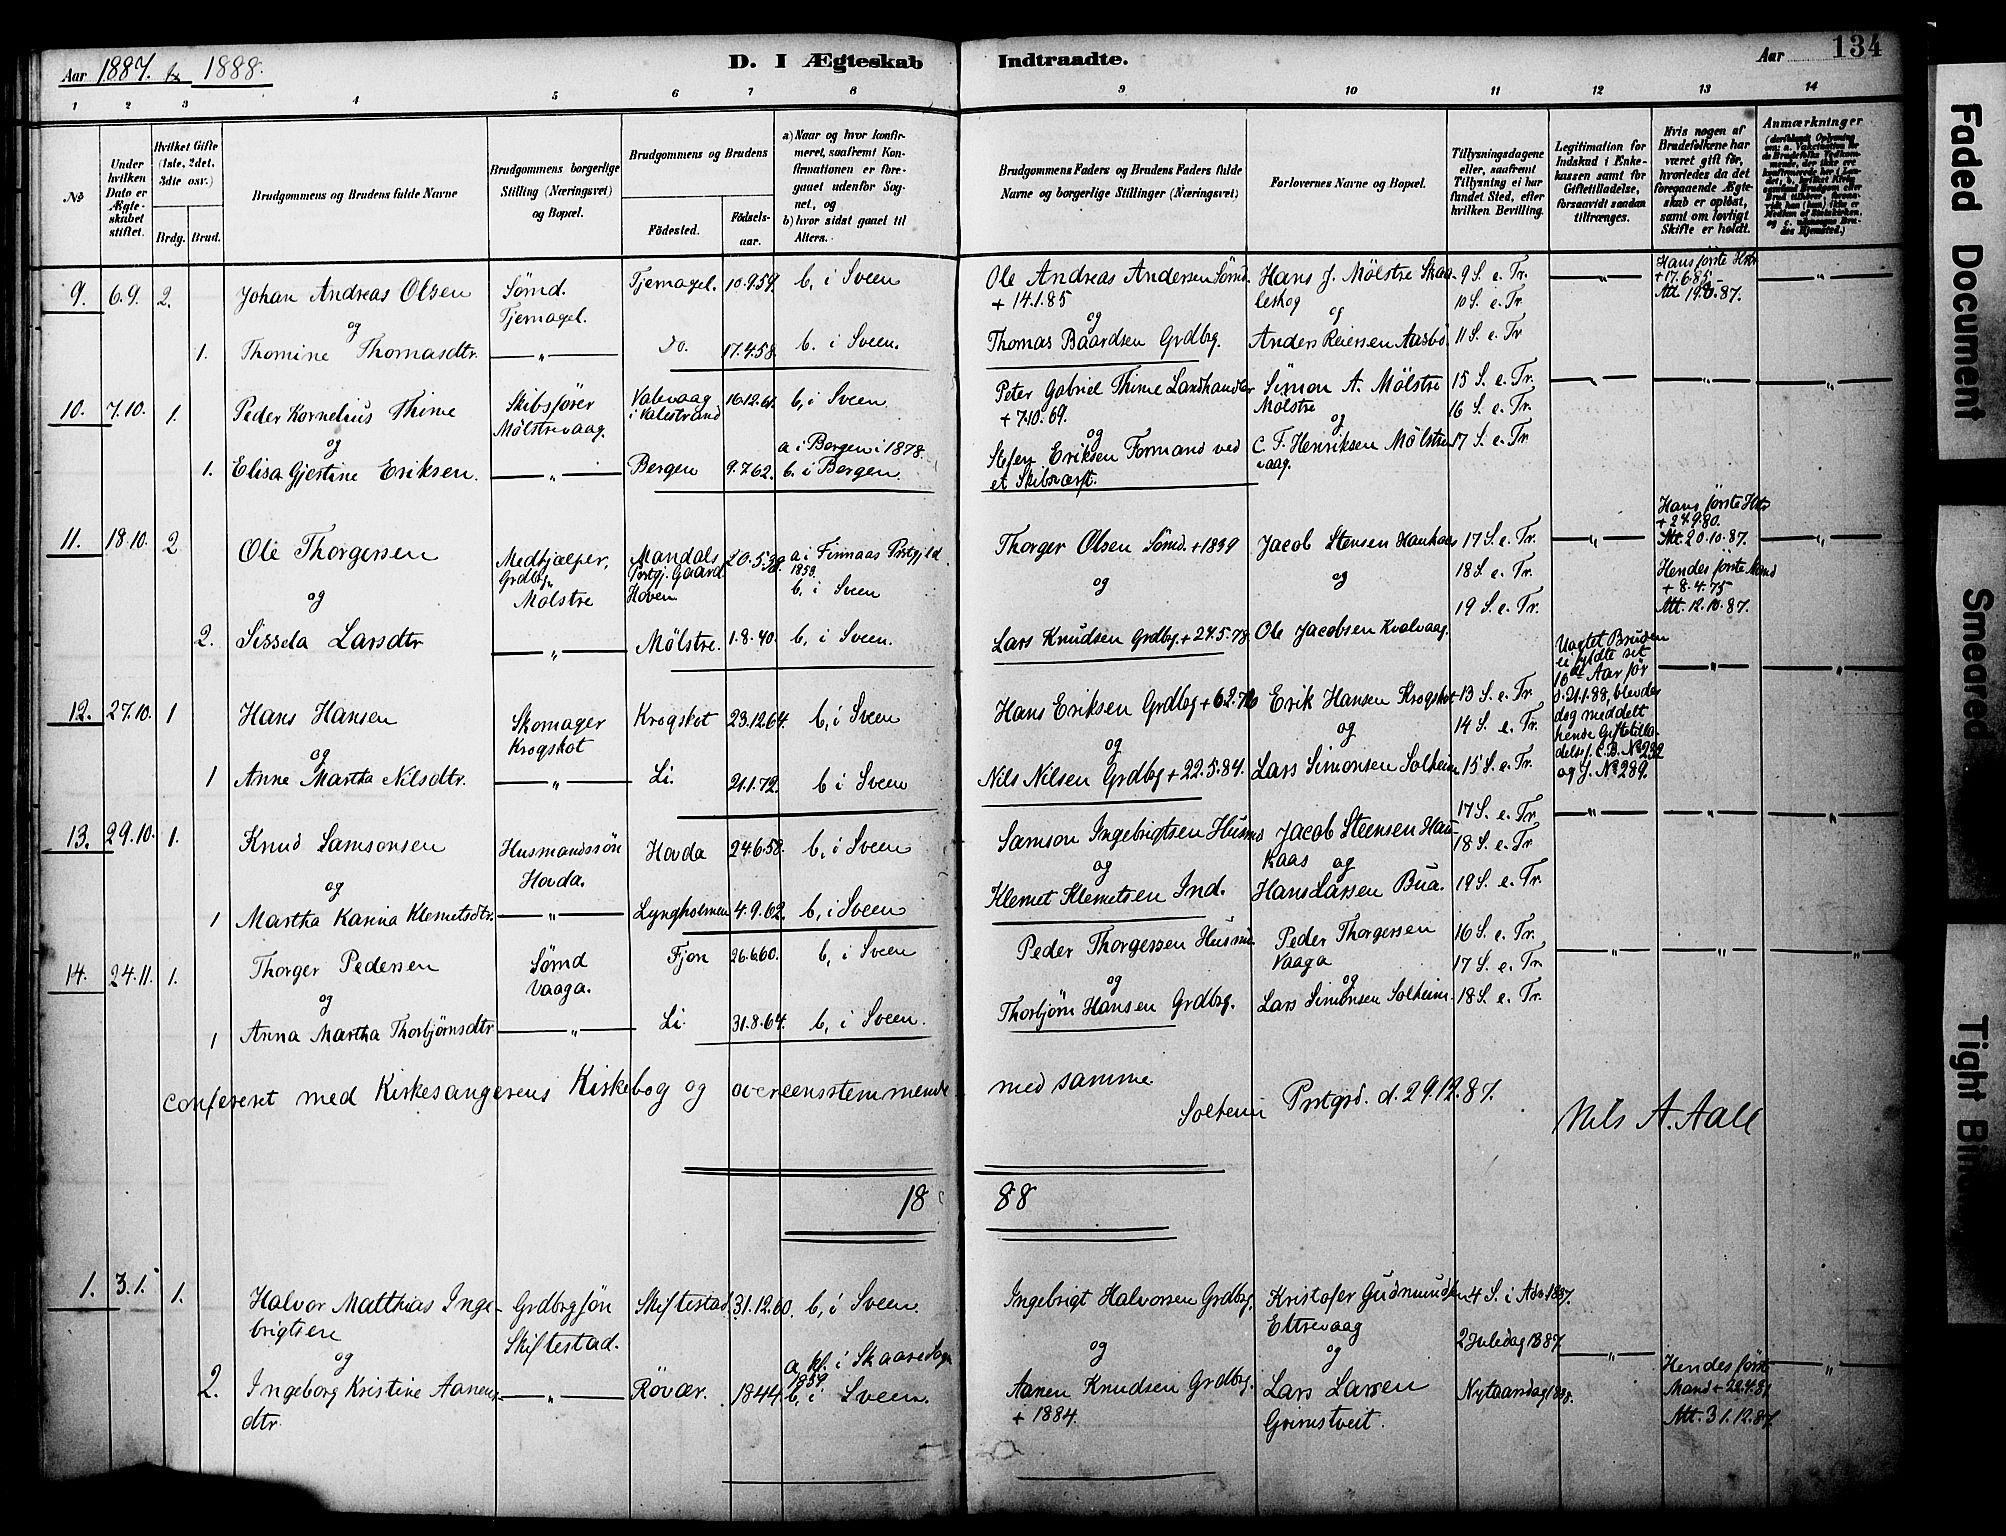 Aar 1887. & 1888.
D. I Ægteskab Indtraadte.
Aar 134
1 2 3 4 5 6 7 8 9 10 11 12 13 14
No
Under hvilken Dato er Ægteskabet stiftet.
Hvilket Gifte (1ste, 2det, 3die osv.)
Brdg. Brud.
Brudgommens og Brudens fulde Navne
Brudgommens borgerlige Stilling (Næringsvei) og Bopæl.
Brudgommens og Brudens
Fødested.
Fødselsaar.
a) Naar og hvor konfirmeret, saafremt Konfirmationen er foregaaet udenfor Sognet, og
b) hvor sidst gaaet til Alters.
Brudgommens Faders og Brudens Faders fulde Navne og borgerlige Stillinger (Næringsvei)
Forlovernes Navne og Bopæl.
Tillysningsdagene eller, saafremt Tillysning ei har fundet Sted, efter hvilken Bevilling.
Legitimation for Indskud i Enkekassen samt for Giftetilladelse, forsaavidt saadan tiltrænges.
Hvis nogen af Brudefolkene har været gift før, hvorledes da det foregaaende Ægteskab er opløst, samt om lovligt Skifte er holdt.
Anmærkninger
9. 6.9. 2. Johan Andreas Olsen Sømd. Tjernagel. Tjernagel. 10.9.59. b, i Sveen
Ole Andreas Andersen Sømd. + 14.1.85 Hans J. Mølstre Skaaleskog 9 S. e. Tr. 10 S. e. Tr. — „ — Hans første Hstr + 17.6.85. — „ —
og og
1. Thomine Thomasdtr. — „ — Do. 17.4.58. b. i Sveen.
Thomas Baardsen Grdbrg. Anders Reiersen Aasbø. 11 S. e. Tr
10. 7.10. 1. Peder Kornelius Thime Skibsfører Mølstrevaag. Valevaag i Valestrand 16.12.61. b, i Sveen.
Peter Gabriel Thime Landhandler + 7.10.69. Simon A. Mølstre Mølstre 15 S. e. Tr. 16 S. e. Tr. — „ — — „ — — „ —
og og og
1. Elisa Gjertine Eriksen. — „ — Bergen 9.7.62. a i Bergen i 1878. b. i Bergen.
Stefen Eriksen Formand ved et Skibsværft. C. F. Henriksen Mølstrevaag. 17 S. e. Tr
11. 18.10. 2 Ole Thorgersen Medhjælper, Grdbrg. Mølstre Mandals Prstgj. Gaard Hoven. 20.5.38. a i Finnaas Prstgjeld. 1853. b, i Sveen
Thorger Olsen Sømd. + 1839 Jacob Stensen Haukaas 17 S. e. Tr. 18 S. e. Tr. — „ — Hans første Hstr + 27.9.80. Att. 20.10.87. — „ —
og og og
Hendes første Mand + 8.4.75 Att. 12.10.87.
2. Sissela Larsdtr — „ — Mølstre. 1.8.40. b, i Sveen.
Lars Knudsen Grdbrg. + 27.5.78 Ole Jacobsen Kvalvaag. 19 S. e. Tr.
12. 27.10. 1 Hans Hansen Skomager Krogskot Krogskot 23.12.64. b, i Sveen
Hans Eriksen Grdbrg Erik Hansen Krogskot 13 S. e. Tr. 14 S. e. Tr.
Uagtet Bruden ei fyldte sit 16de Aar før d. 21.1.88, blev der dog meddelt hende Giftetilladelse f. C.B. No 232 og J. No 289. — „ — — „ —
og og og
1 Anne Martha Nilsdtr. — „ — Li. 21.1.72. b i Sveen
Nils Nilsen Grdbrg + 22.5.84. Lars Simonsen Solheim. 15 S. e. Tr.
13. 29.10. 1. Knud Samsonsen Husmandssøn Hovda. Hovda 24.6.58. b, i Sveen
Samson Ingebrigtsen Husmd Jacob Steensen Haukaas og 17 S. e. Tr 18 S. e. Tr — „ — — „ — — „ —
og og
1 Martha Karina Klemetsdtr. — „ — Lyngholmen 4.9.62. b, i Sveen
Klemet Klemetsen Ind. Hans Larsen Bua. 19 S. e. Tr.
14. 24.11. 1. Thorger Pedersen Sømd Vaaga. Fjon 26.6.60. b, i Sveen
Peder Thorgersen Husmd. Peder Thorgersen Vaaga 16 S. e. Tr. 17 S. e. Tr — „ — — „ — — „ —
og og og
1 Anna Martha Thorbjørnsdtr — „ — Li. 31.8.64. b, i Sveen.
Thorbjørn Hansen Grdbrg. Lars Simonsen Solheim. 18 S. e. Tr.
confereret med Kirkesangerens Kirkebog og overeensstemmende med samme.
Solheim Prstgrd. d. 29.12.87. Nils A. Aall
18 88
1. 3.1. 1. Halvor Matthias Ingebrigtsen Grdbrgsøn Skiftestad. Skiftestad 31.12.60. b, i Sveen.
Ingebrigt Halvorsen Grdbrg. Kristofer Gudmundsen Eltrevaag 4 S. i Adv. 1887. 2 Juledag 1887.
og og og
2. Ingeborg Kristine Aanensdtr. — „ — Røvær. 1844. a, kf. i Skaare Sogn 1859 b, i Sveen.
Aanen Knudsen Grdbrg. + 1884. Lars Larsen Grimstveit. Nytaarsdag 1888. — „ — Hendes første Mand + 22.4.81 Att. 31.12.87. — „ —
Faded Document
Smeared
Tight